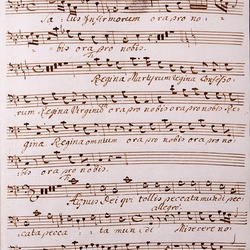 Sa lus Infirmorum ora pro no
bis ora pro nobis.
Regina Martyrum Regina Confesso
rum Regina Virginum ora pro nobis ora pro nobis Re
gina Regina omnium ora pro nobis ora pro no
bis ora pro nobis.
Agnus Dei qui tollis peccata mundi pec
allegro
cata pecca ta mundi Miserere no